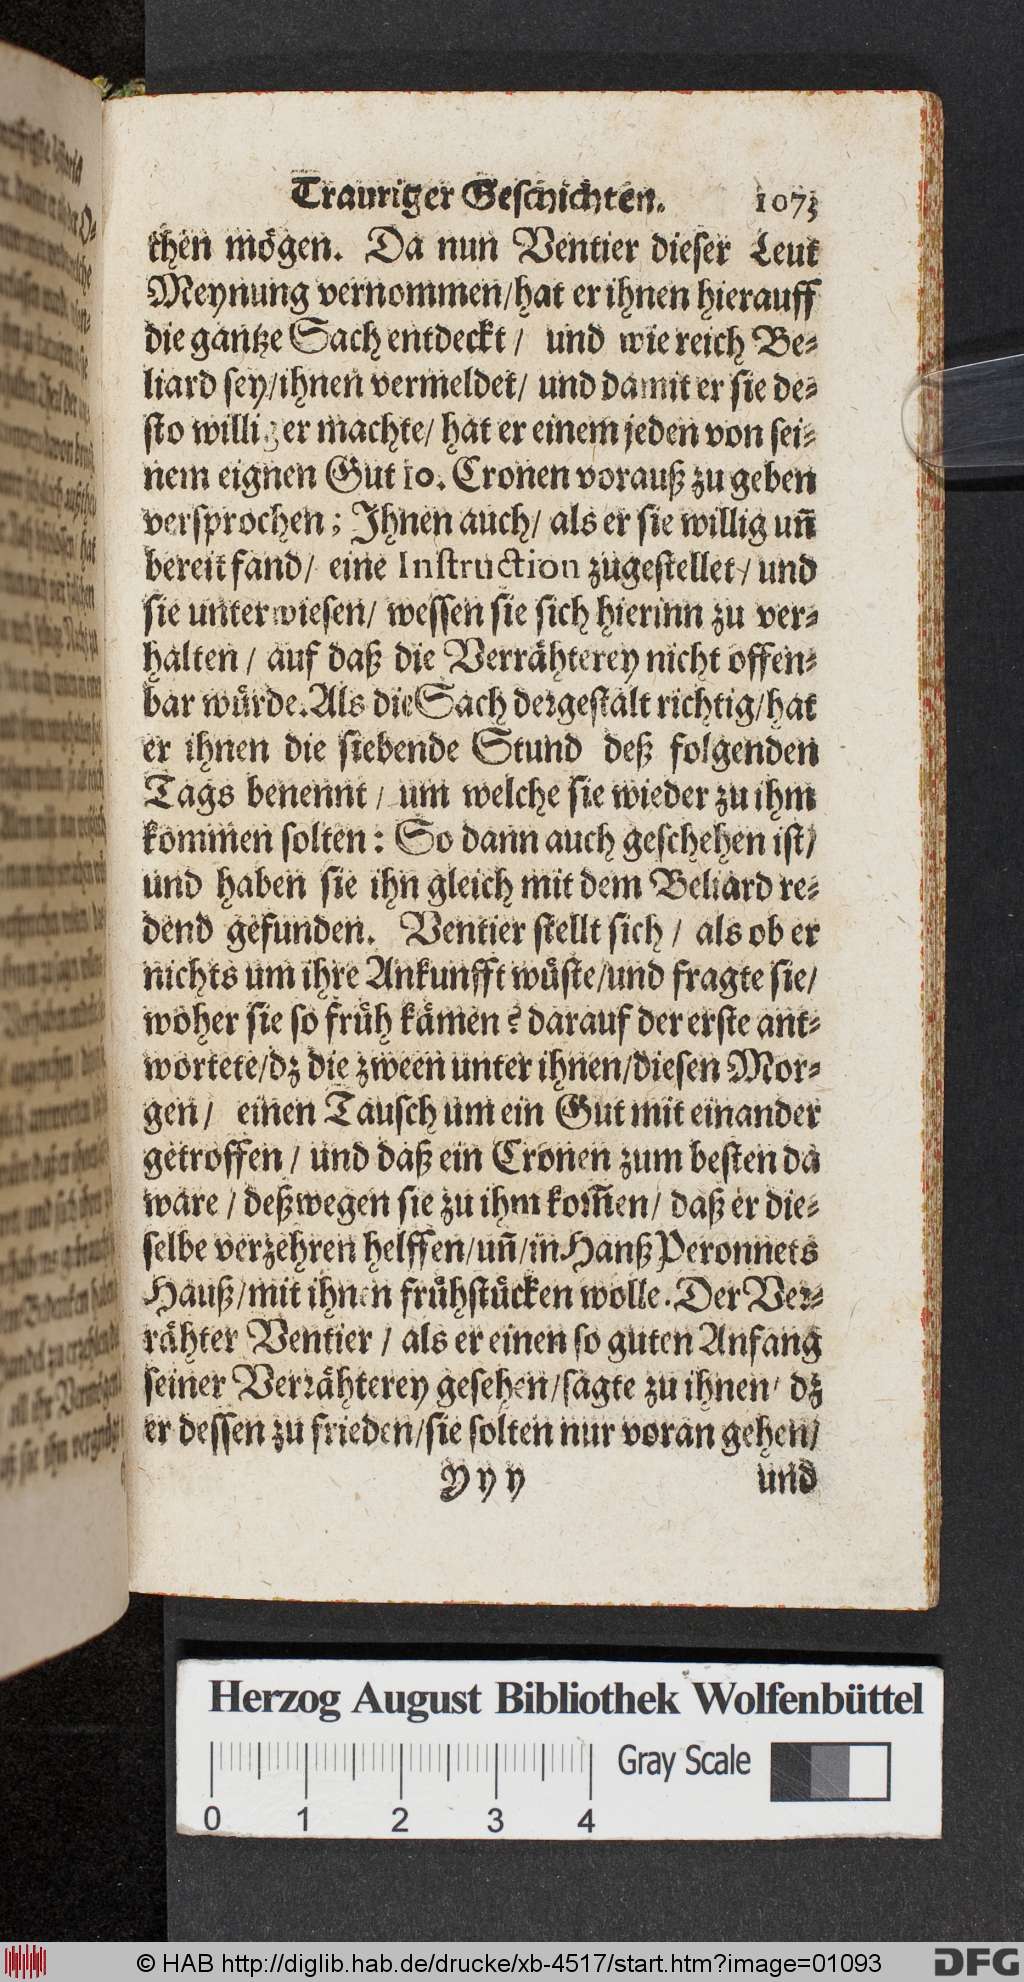 Trauriger Geschichten. 1073
chen mögen. Da nun Ventier dieser Leut
Meynung vernommen/hat er ihnen hierauff
die gantze Sach entdeckt/ und wie reich Be⸗
liard sey/ihnen vermeldet/ und damit er sie de⸗
sto williger machte/ hat er einem jeden von sei⸗
nem eignen Gut 10. Cronen vorauß zu geben
versprochen; Ihnen auch/ als er sie willig uñ
bereit fand/ eine Instruction zugestellet/ und
sie unterwiesen/ wessen sie sich hierinn zu ver⸗
halten/ auf daß die Verrähterey nicht offen⸗
bar würde. Als die Sach dergestalt richtig/hat
er ihnen die siebende Stund deß folgenden
Tags benennt/ um welche sie wieder zu ihm
kommen solten: So dann auch geschehen ist/
und haben sie ihn gleich mit dem Beliard re⸗
dend gefunden. Ventier stellt sich/ als ob er
nichts um ihre Ankunfft wüste/und fragte sie/
woher sie so früh kämen? darauf der erste ant⸗
wortete/dz die zween unter ihnen/diesen Mor⸗
gen/ einen Tausch um ein Gut mit einander
getroffen/ und daß ein Cronen zum besten da
ware/ deßwegen sie zu ihm kom̃en/ daß er die⸗
selbe verzehren helffen/uñ/in Hanß Peronnets
Hauß/mit ihnen frühstücken wolle. Der Ver⸗
rähter Ventier/ als er einen so guten Anfang
seiner Verrähterey gesehen/sagte zu ihnen/ dz
er dessen zu frieden/sie solten nur voran gehen/
Yyy und
Herzog August Bibliothek Wolfenbüttel
Gray Scale
0 1 2 3 4
© HAB http://diglib.hab.de/drucke/xb-4517/start.htm?image=01093
DFG